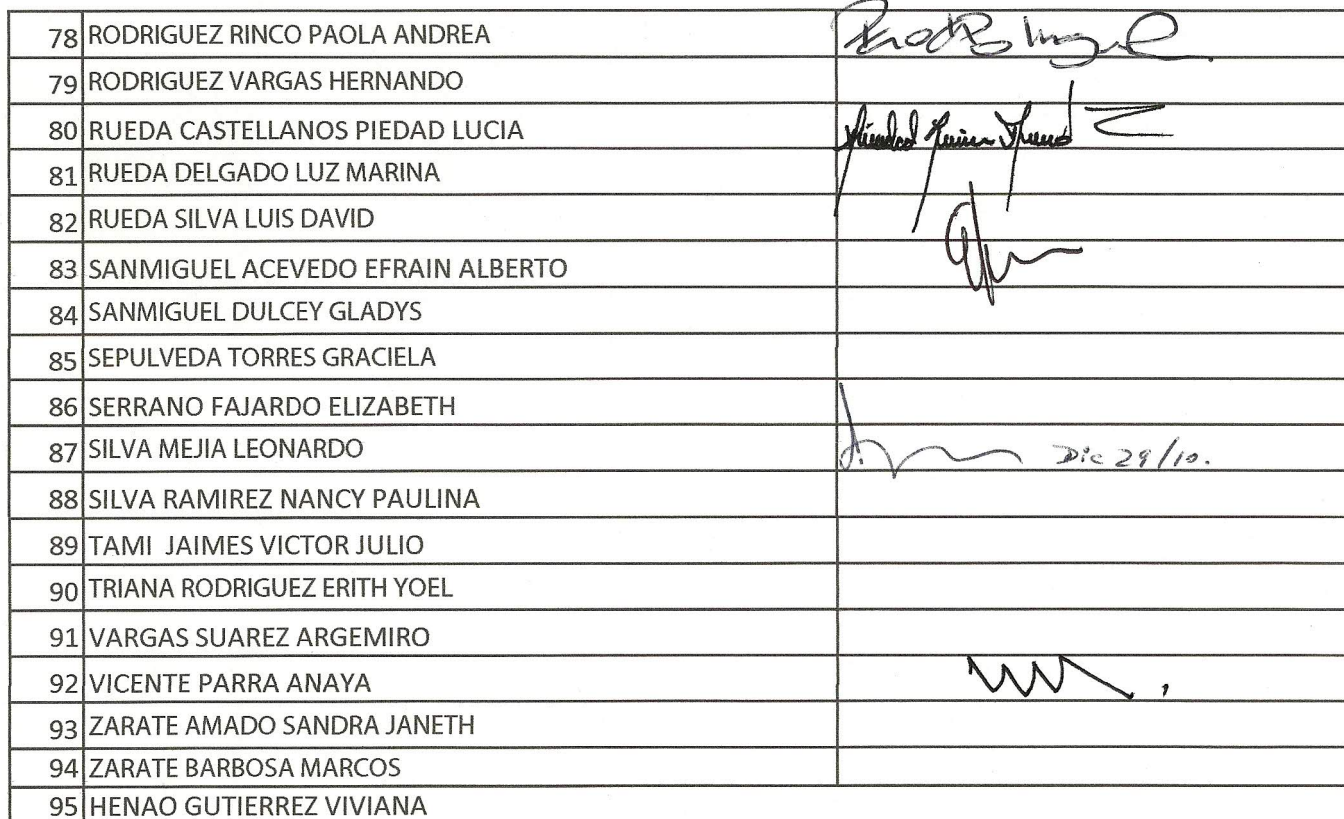 78 RODRIGUEZ RINCO PAOLA ANDREA
79 RODRIGUEZ VARGAS HERNANDO
80 RUEDA CASTELLANOS PIEDAD LUCIA
81 RUEDA DELGADO LUZ MARINA
82 RUEDA SILVA LUIS DAVID
83 SANMIGUEL ACEVEDO EFRAIN ALBERTO
84 SANMIGUEL DULCEY GLADYS
85 SEPULVEDA TORRES GRACIELA
86 SERRANO FAJARDO ELIZABETH
87 SILVA MEJIA LEONARDO Dic 29/10.
88 SILVA RAMIREZ NANCY PAULINA
89 TAMI JAIMES VICTOR JULIO
90 TRIANA RODRIGUEZ ERITH YOEL
91 VARGAS SUAREZ ARGEMIRO
92 VICENTE PARRA ANAYA
93 ZARATE AMADO SANDRA JANETH
94 ZARATE BARBOSA MARCOS
95 HENAO GUTIERREZ VIVIANA